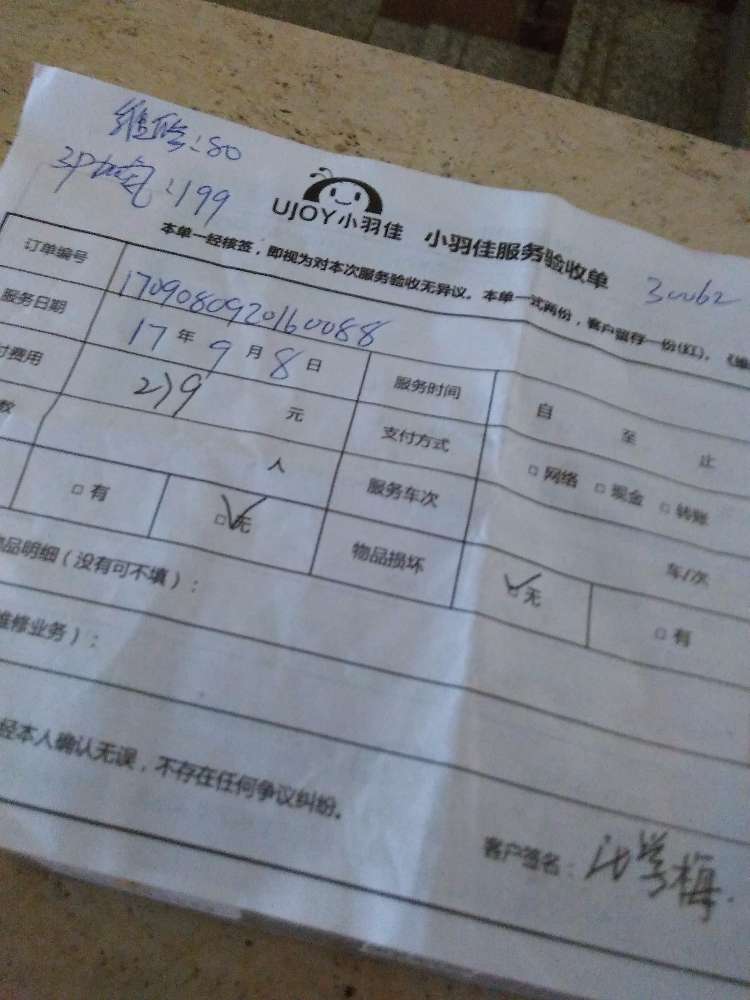 维修:80
3P加氟:199
UJOY小羽佳 小羽佳服务验收单
30062
本单一经核签，即视为对本次服务验收无异议。本单一式两份，客户留存一份(红)。
订单编号 1709080920160088
服务日期 17年9月8日 服务时间 自 至 止
付费用 279 元 支付方式 □网络 □现金 □转账
款 人 服务车次 车/次
□有 □无 物品损坏 □无 □有
品明细（没有可不填）：
维修业务）：
经本人确认无误，不存在任何争议纠纷。
客户签名：